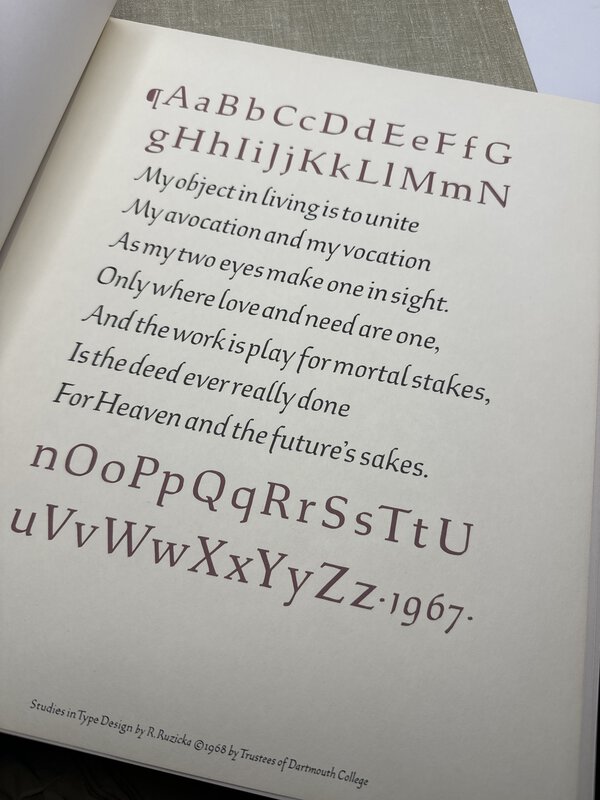 ¶AaBbCcDdEeFfG
gHhIiJjKkLlMmN
My object in living is to unite
My avocation and my vocation
As my two eyes make one in sight.
Only where love and need are one,
And the work is play for mortal stakes,
Is the deed ever really done
For Heaven and the future's sakes.
nOoPpQqRrSsTtU
uVvWwXxYyZz·1967·
Studies in Type Design by R. Ruzicka ©1968 by Trustees of Dartmouth College